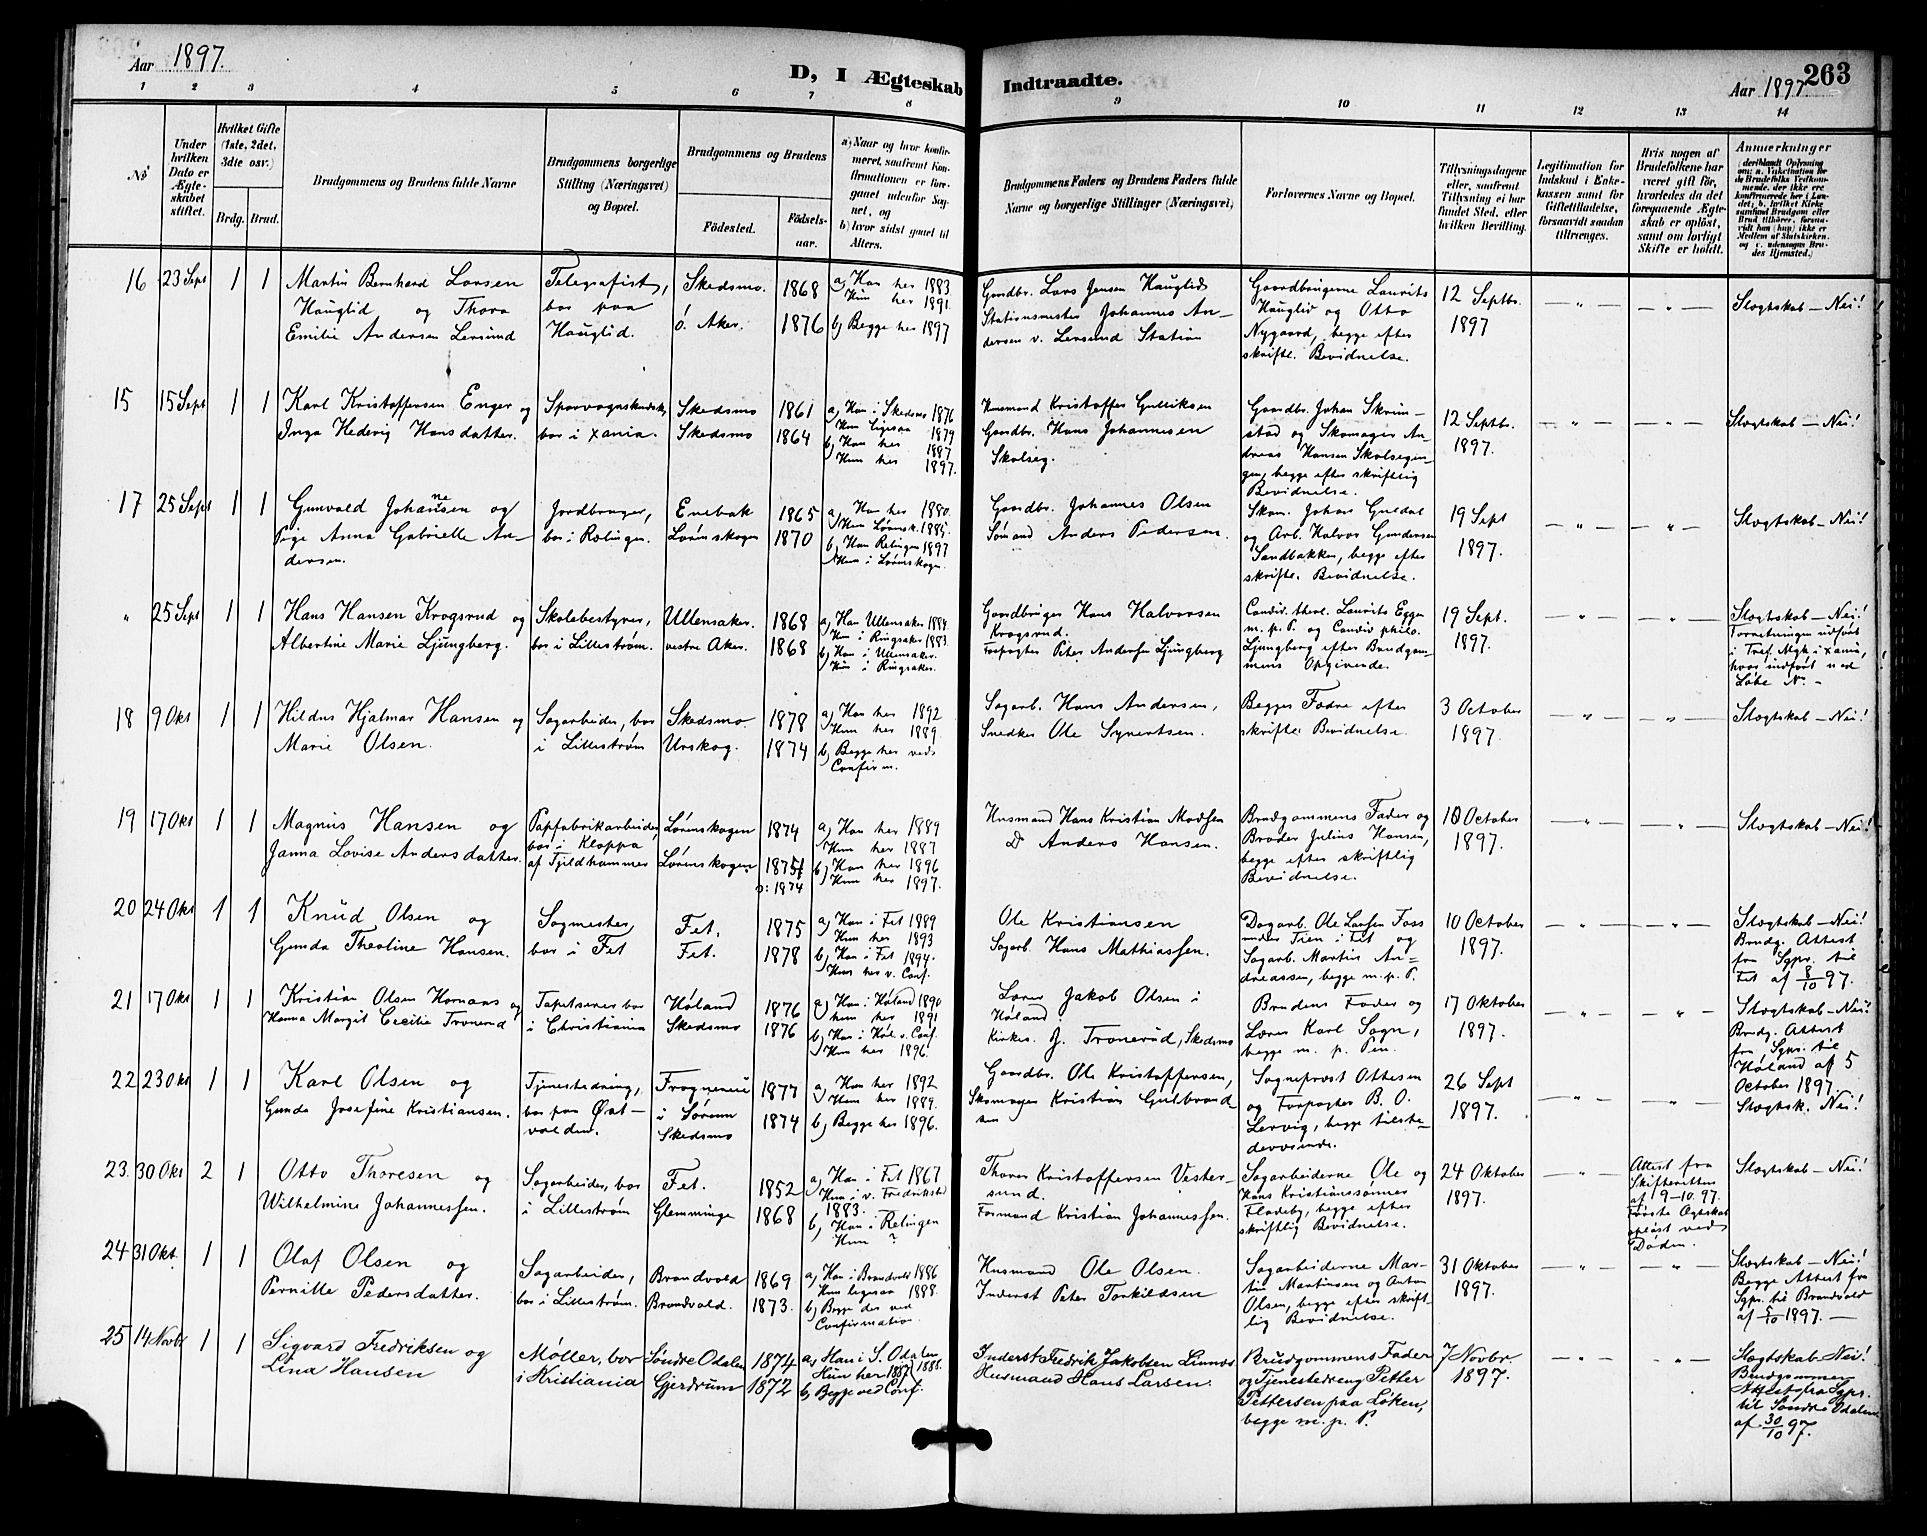 Aar 1897.
D, I Ægteskab
Indtraadte.
Aar 1897.
263
1 2 3 4 5 6 7 8 9 10 11 12 13 14
No
Under hvilken Dato er Ægteskabet stiftet.
Hvilket Gifte (1ste, 2det, 3dte osv.)
Brdg. Brud.
Brudgommens og Brudens fulde Navne
Brudgommens borgerlige Stilling (Næringsvei) og Bopæl.
Brudgommens og Brudens
Fødested.
Fødselsaar.
a) Naar og hvor konfirmeret, saafremt Konfirmationen er foregaaet udenfor Sognet, og
b) hvor sidst gaaet til Alters.
Brudgommens Faders og Brudens Faders fulde Navne og borgerlige Stillinger (Næringsvei)
Forlovernes Navne og Bopæl.
Tillysningsdagene eller, saafremt Tillysning ei har fundet Sted, efter hvilken Bevilling.
Legitimation for Indskud i Enkekassen samt for Giftetilladelse, forsaavidt saadan tiltrænges.
Hvis nogen af Brudefolkene har været gift før, hvorledes da det foregaaende Ægteskab er opløst, samt om lovligt Skifte er holdt.
Anmærkninger
16 23 Sept 1 1
Martin Bernhard Larsen
Hauglid og Thora
Emilie Andersen Lersund
Telegrafist,
bor paa
Hauglid.
Skedsmo. 1868
ø. Aker. 1876
a) Han her 1883
Hun her 1891.
b) Begge her 1897
Gaardbr. Lars Jensen Hauglid
Stationsmester Johannes An-
dersen v. Lersund Station
Gaardbrugerne Laurits
Hauglid og Otto
Nygaard, begge efter
skriftl. Bevidnelse.
12 Septbr.
1897
Slægtskab – Nei!
15 15 Sept 1 1
Karl Kristoffersen Enger og
Inga Hedevig Hansdatter.
Sporvognskudsk,
bor i Xania.
Skedsmo 1861
Skedsmo 1864
a) Han i Skedsmo 1876
Hun ligesaa 1879
b) Han her 1887
Hun her 1897.
Husmand Kristoffer Gulliksen
Gaardbr. Hans Johannesen
Skolseg.
Gaardbr. Johan Skrim-
stad og Skomager An-
dreas Hansen Skolsegen-
gen, begge efter skriftlig
Bevidnelse.
12 Septbr.
1897.
Slægtskab – Nei!
17 25 Sept 1 1
Gunvald Johannesen og
Pige Anna Gabrielle An-
dersen.
Jordbruger,
bor i Rælingen.
Enebak 1865
Lørenskogen 1870
a) Han her 1880.
Hun Lørensk. 1885.
b) Han Relingen 1897
Hun i Lørenskogen.
Gaardbr. Johannes Olsen
Sømand Anders Pedersen.
Skom. Johan Guldal
og Arb. Halvor Gundersen
Sandbakken, begge efter
skriftl. Bevidnelse.
19 Sept
1897.
Slægtskab – Nei!
" 25 Sept 1 1
Hans Hansen Krogsrud og
Albertine Marie Ljungberg.
Skolebestyrer,
bor i Lillestrøm.
Ullensaker. 1868
vestre Aker. 1868
a) Han Ullensaker 1884.
Hun i Ringsaker 1883.
b) Han i Ullensaker.
Hun i Ringsaker.
Gaardbruger Hans Halvorsen
Krogsrud.
Forpagter Peter Andersen Ljungberg
Candid. theol. Laurits Egge
m. p. P. og Candid philo.
Ljungberg efter Brudgom-
mens Opgivende.
19 Sept.
1897.
Slægtskab – Nei!
Forretningen udført
i Tref. Mgk i Xania,
hvor indført ved
Løbe No. –
18 9 Okt 1 1
Hildus Hjalmar Hansen og
Marie Olsen.
Sagarbeider, bor
i Lillestrøm
Skedsmo 1878
Urskog. 1874
a) Han her 1892
Hun her 1889.
b) Begge her ved
Confirm.
Sagarb. Hans Andersen,
Snedker Ole Syvertsen.
Begges Fædre efter
skriftl. Bevidnelse.
3 October
1897.
Slægtskab – Nei!
19 17 Okt 1 1
Magnus Hansen og
Janna Lovise Andersdatter.
Papfabrikarbeider,
bor i Kloppa
af Fjeldhammer
Lørenskogen 1874
Lørenskogen 1875
ɔ: 1874
a) Han her 1889
Hun her 1887
b) Han her 1896
Hun her 1897.
Husmand Hans Kristian Madsen
Do Anders Hansen.
Brudgommens Fader og
Broder Julius Hansen,
begge efter skriftlig
Bevidnelse.
10 October
1897.
Slægtskab – Nei!
20 24 Okt 1 1
Knud Olsen og
Gunda Theoline Hansen.
Sagmester,
bor i Fet
Fet. 1875
Fet. 1878
a) Han i Fet 1889
Hun her 1893
b) Han i Fet 1894.
Hun her v. Conf.
Ole Kristiansen
Sagarb. Hans Mathiassen.
Dagarb. Ole Larsen Foss
under Tien i Fet og
Sagarb. Martin An-
dreassen, begge m. p. P.
10 October
1897.
Slægtskab – Nei!
Brudg. Attest
fra Sgpr. til
Fet af 8/10 97.
21 17 Okt 1 1
Kristian Olsen Hornaas og
Hanna Margit Cecilie Tronerud
Tapetserer bor
i Christiania
Høland 1876
Skedsmo 1876
a) Han i Høland 1890
Hun her 1891
b) Han i Høl. v. Conf.
Hun her 1896.
Lærer Jakob Olsen i
Høland
Kirkes. J. Tronerud, Skedsmo
Brudens Fader og
Lærer Karl Sogn,
begge m. p. Pen.
17 Oktober
1897.
Slægtskab – Nei!
Brudg. Attest
fra Sgpr. til
Høland af 5
October 1897.
22 23 Okt 1 1
Karl Olsen og
Gunda Josefine Kristiansen.
Tjenestedreng,
bor paa Øst-
volden.
Frogner
i Sørum 1877
Skedsmo 1874
a) Han her 1892
Hun her 1889.
b) Begge her 1896.
Gaardbr. Ole Kristoffersen,
Skomager Kristian Gulbrand
sen
Sogneprest Ottesen
og Forpagter B. O.
Lervig, begge tilste-
deværende.
26 Sept
1897.
Slægtsk. Nei!
23. 30 Okt 2 1
Otto Thoresen og
Wilhelmine Johannessen.
Sagarbeider, bor
i Lillestrøm
Fet. 1852
Glemminge 1868
a) Han i Fet 1867
Hun i v. Fredrikstad
1883.
b) Han i Relingen
Hun ?
Thorer Kristoffersen Vester-
sund.
Formand Kristian Johannessen.
Sagarbeiderne Ole og
Hans Kristianssønner
Fladeby, begge efter
skriftlig Bevidnelse.
24 Oktober
1897.
Attest fra
Skifteretten
af 9-10.97.
Første Ægteskab
opløst ved
Døden.
Slægtskab – Nei!
24 31 Okt. 1 1
Olaf Olsen og
Pernille Pedersdatter.
Sagarbeider,
bor i Lillestrøm.
Brandvold 1869
Brandvold. 1873.
a) Han i Brandvold 1886
Hun ligesaa 1888.
b) Begge der ved
Confirmation
Husmand Ole Olsen.
Inderst Peter Torkildsen
Sagarbeiderne Mar-
tin Martinsen og Anton
Olsen, begge efter skrift-
lig Bevidnelse.
31 Oktober
1897.
Slægtskab – Nei!
Begge Attest fra
Sgpr. til Brandvold
af 5/10 1897. –
25 14 Novbr 1 1
Sigvard Fredriksen og
Lina Hansen
Møller, bor
i Kristiania
Søndre Odalen 1874
Gjerdrum 1872
a) Han i S. Odalen
1888.
Hun her 1887
b) Begge ved Conf.
Inderst Fredrik Jakobsen Linnes
Husmand Hans Larsen.
Brudgommens Fader
og Tjenestedreng Petter
Pettersen paa Løken,
begge m. p. P.
7 Novbr.
1897.
Slægtskab – Nei!
Brudgommen
Attest fra Sgpr.
til Søndre Odalen
af 30/10 97.